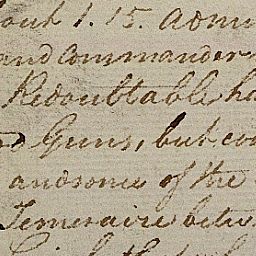 out 1.15. adm
and commander
Redoubtable ha
Guns, but co
and some of the
Temeraire betw